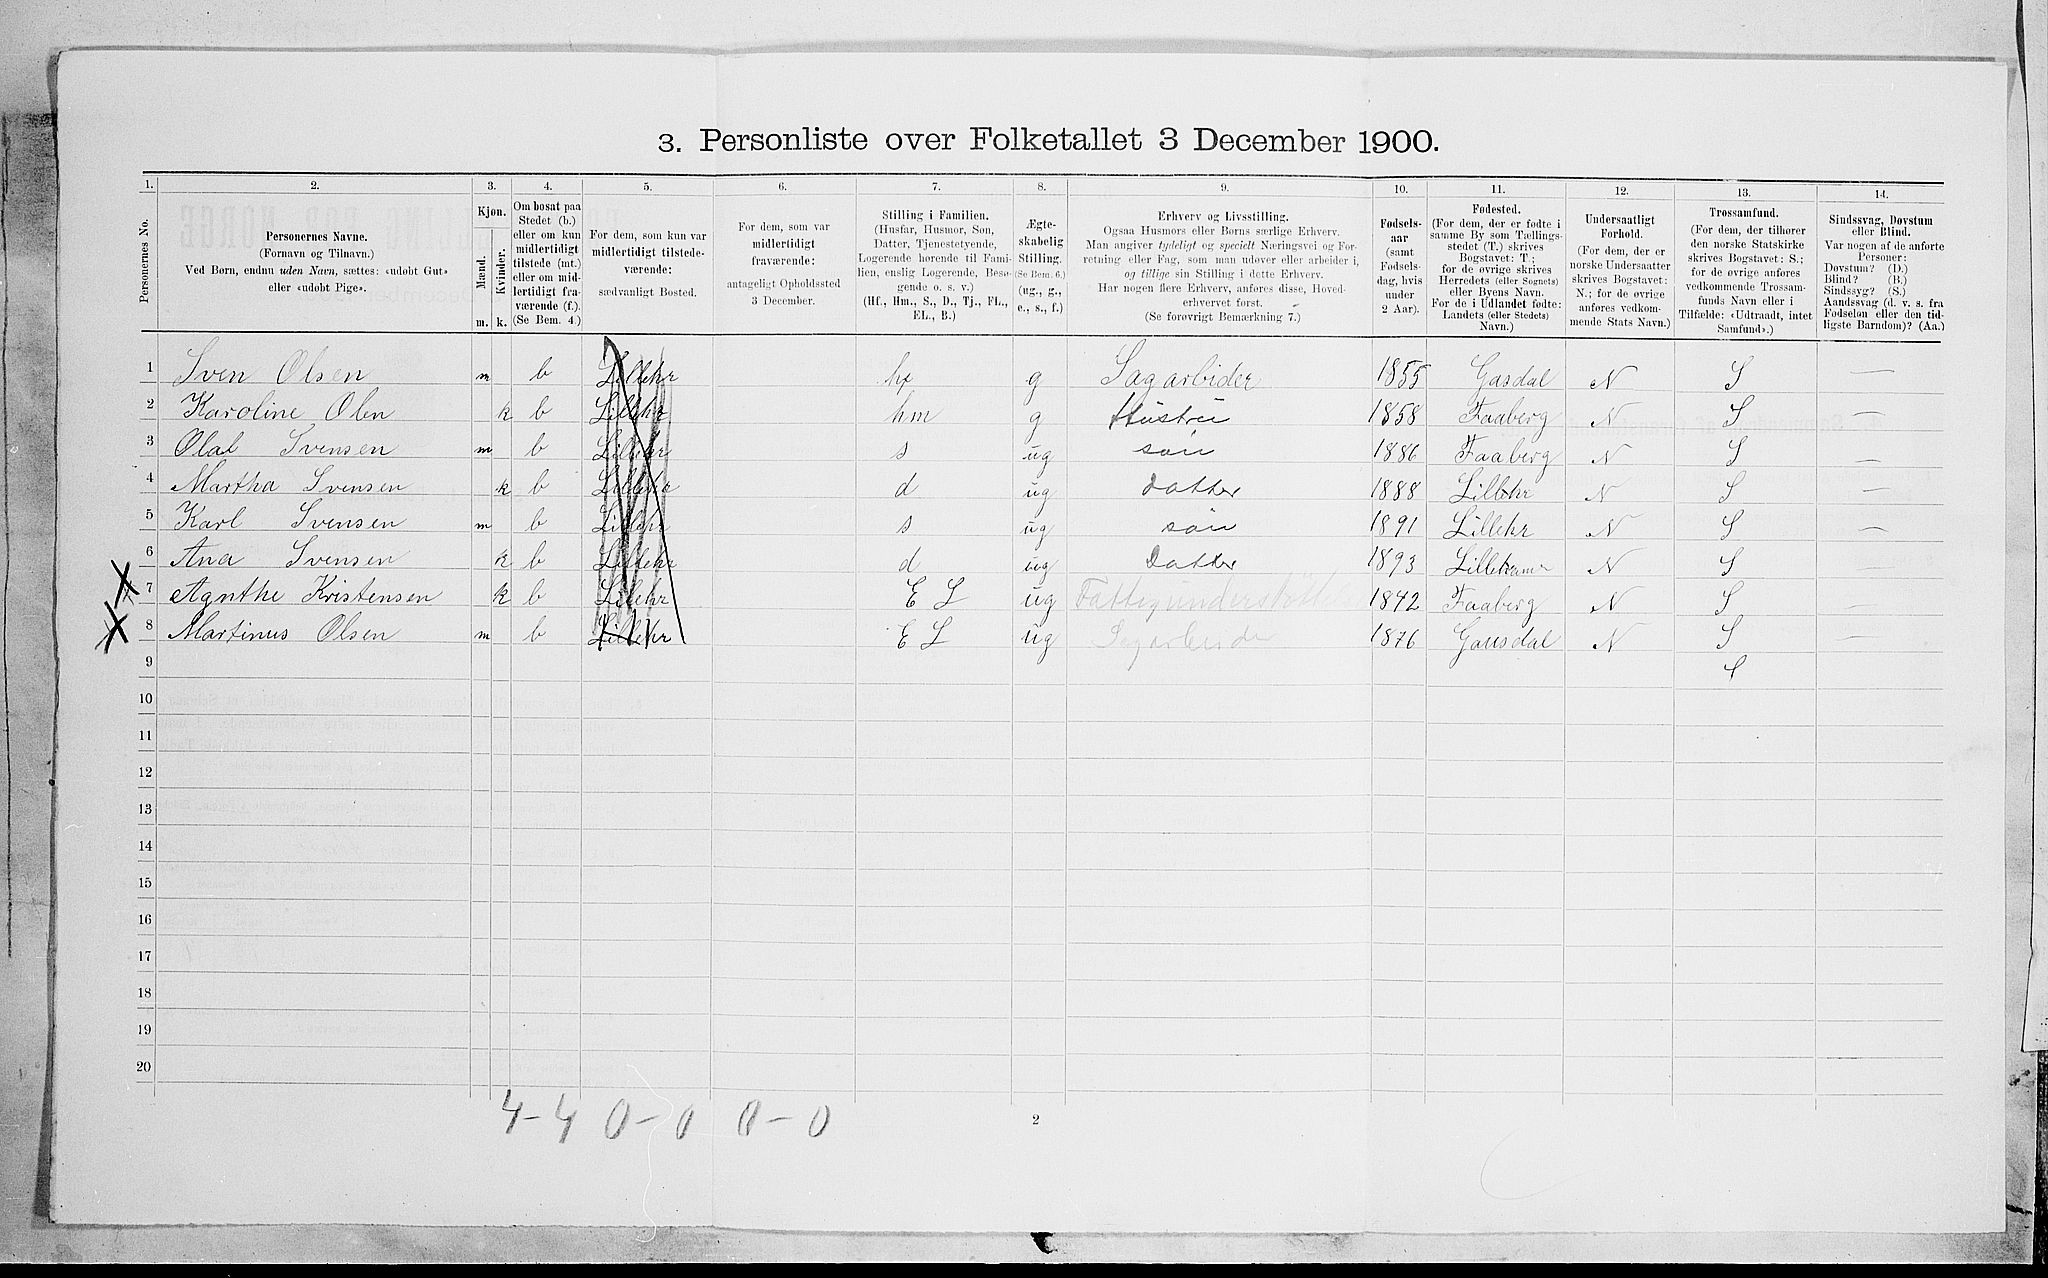 3. Personliste over Folketallet 3 December 1900.
1. 2. 3. 4. 5. 6. 7. 8. 9. 10. 11. 12. 13. 14.
Personernes No.
Personernes Navne.
(Fornavn og Tilnavn.)
Ved Børn, endnu uden Navn, sættes: «udøbt Gut»
eller «udøbt Pige».
Kjøn.
Mænd.
Kvinder.
m. k.
Om bosat paa
Stedet (b.)
eller om kun
midlertidigt
tilstede (mt.)
eller om mid-
lertidigt fra-
værende (f.).
(Se Bem. 4.)
For dem, som kun var
midlertidigt tilstede-
værende:
sædvanligt Bosted.
For dem, som var
midlertidigt
fraværende:
antageligt Opholdssted
3 December.
Stilling i Familien.
(Husfar, Husmor, Søn,
Datter, Tjenestetyende,
Logerende hørende til Fami-
lien, enslig Logerende, Besø-
gende o. s. v.)
(Hf., Hm., S., D., Tj., FL.,
EL., B.)
Ægte-
skabelig
Stilling.
(Se Bem. 6.)
(ug., g.,
e., s., f.)
Erhverv og Livsstilling.
Ogsaa Husmors eller Børns særlige Erhverv.
Man angiver tydeligt og specielt Næringsvei og For-
retning eller Fag, som man udøver eller arbeider i,
og tillige sin Stilling i dette Erhverv.
Har nogen flere Erhverv, anføres disse, Hoved-
erhvervet først.
(Se forøvrigt Bemærkning 7.)
Fødsels-
aar
(samt
Fødsels-
dag, hvis
under
2 Aar).
Fødested.
(For dem, der er fødte i
samme By som Tællings-
stedet (T.) skrives
Bogstavet: T.;
for de øvrige skrives
Herredets (eller Sognets)
eller Byens Navn.
For de i Udlandet fødte:
Landets (eller Stedets)
Navn.)
Undersaatligt
Forhold.
(For dem, der er
norske Undersaatter
skrives Bogstavet:
N.; for de øvrige
anføres vedkom-
mende Stats Navn.)
Trossamfund.
(For dem, der tilhører
den norske Statskirke
skrives Bogstavet: S.;
for de øvrige anføres
vedkommende Trossam-
funds Navn eller i
Tilfælde: «Udtraadt, intet
Samfund».)
Sindssvag, Døvstum
eller Blind.
Var nogen af de anførte
Personer:
Døvstum? (D.)
Blind? (B.)
Sindssyg? (S.)
Aandssvag (d. v. s. fra
Fødselen eller den tid-
ligste Barndom)? (Aa.)
1 Sven Olsen m b Lillehr hf g Sagarbider 1855 Gasdal N S —
2 Karoline Olsn k b Lillehr hm g Hustru 1858 Faaberg N S —
3 Olaf Svensen m b Lillehr s ug søn 1886 Faaberg N S —
4 Martha Svensen k b Lillehr d ug datter 1888 Lillehr N S —
5 Karl Svensen m b Lillehr s ug søn 1891 Lillehr N S —
6 Ana Svensen k b Lillehr d ug Datter 1893 Lillehamr N S —
7 Agnthe Kristensen k b Lillehr E L ug Fattigunderstøtt 1842 Faaberg N S —
8 Martinus Olsen m b Lillehr E L ug Sagarbeider 1876 Gausdal N S —
9 S
10
11
12
13
14
15
16
17
18
19
20
4-4 0-0 0-0
2